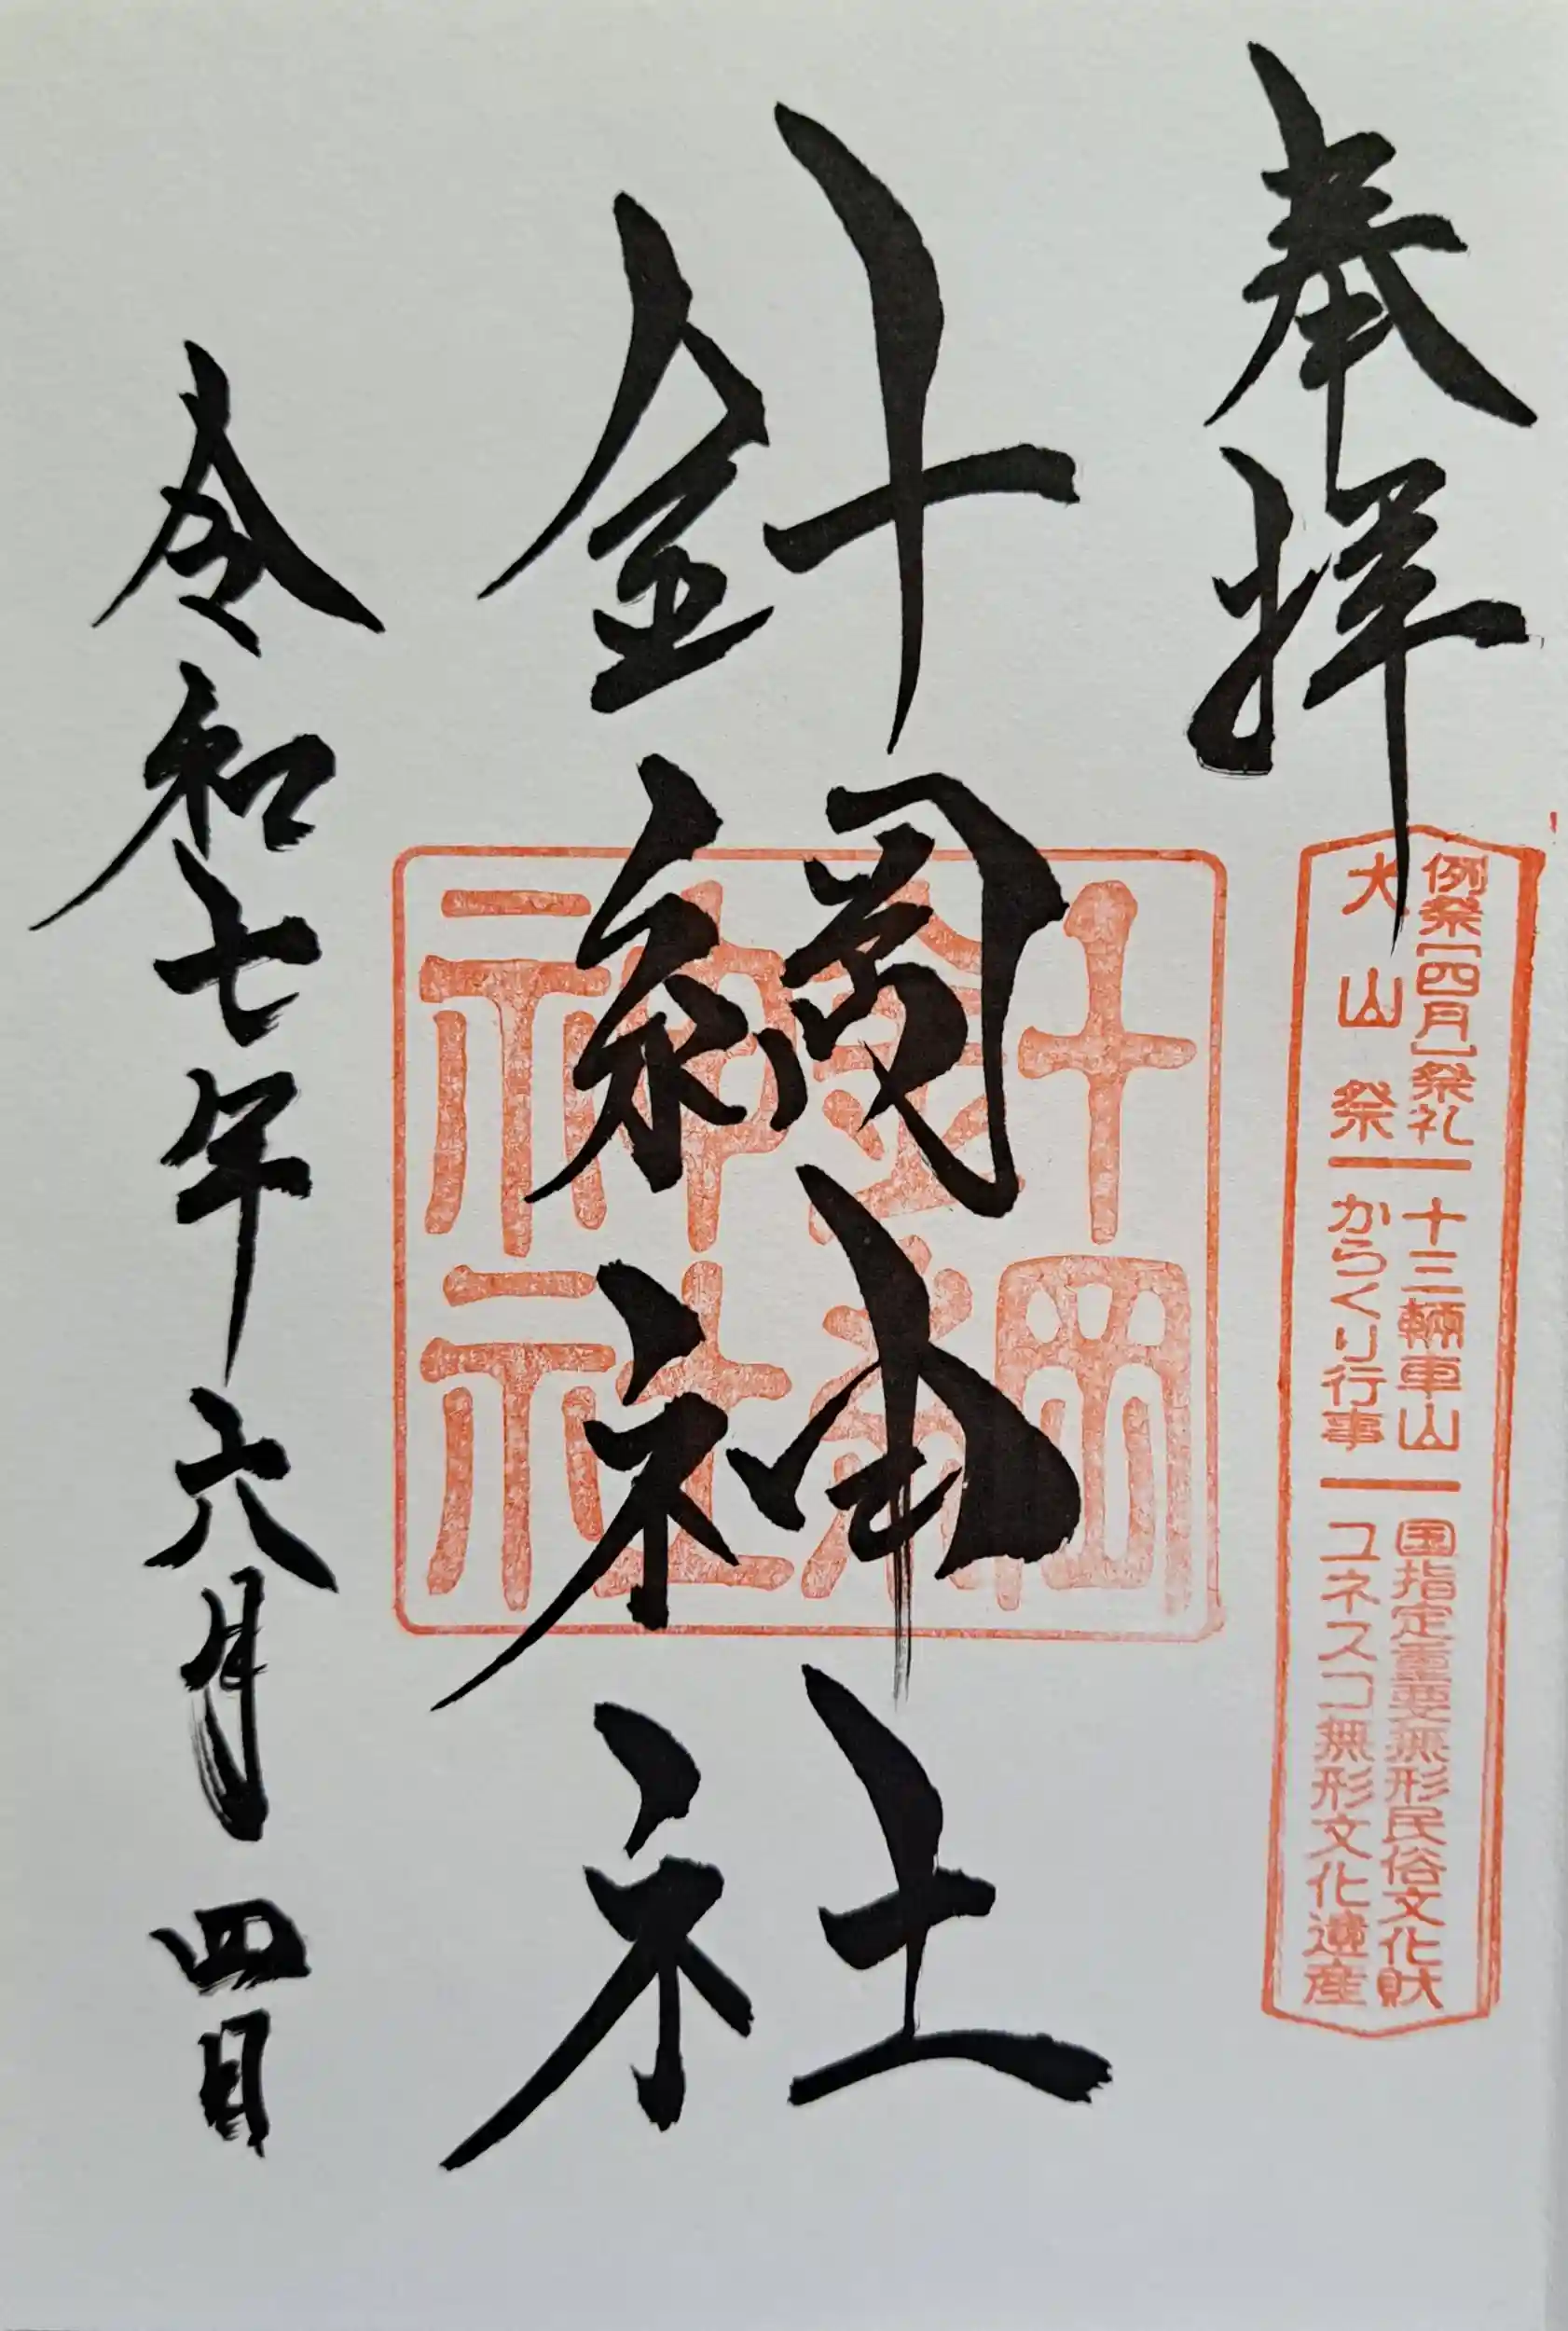 奉拝
例祭[四月]祭礼 十三輛車山 国指定重要無形民俗文化財
犬山祭 からくり行事 ユネスコ無形文化遺産
針綱神社
針綱神社
令和七年六月四日